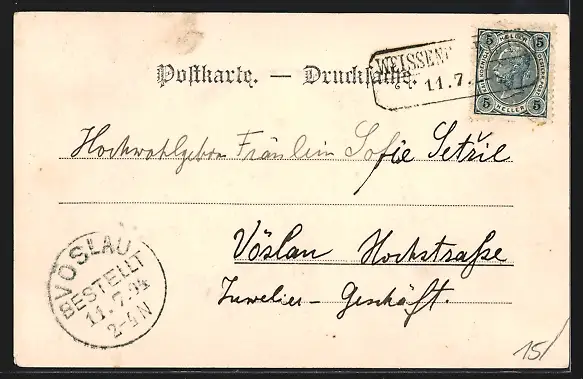 Postkarte. — Drucksache.
WEISSENB
11.7.
5 HELLER 5
5 HELLER 5
Hochwohlgeborn Fräulein Sofie Setřil
Vöslau Hochstraße
Juwelier-Geschäft.
VÖSLAU
BESTELLT
11.7.04
2-4 N
15/